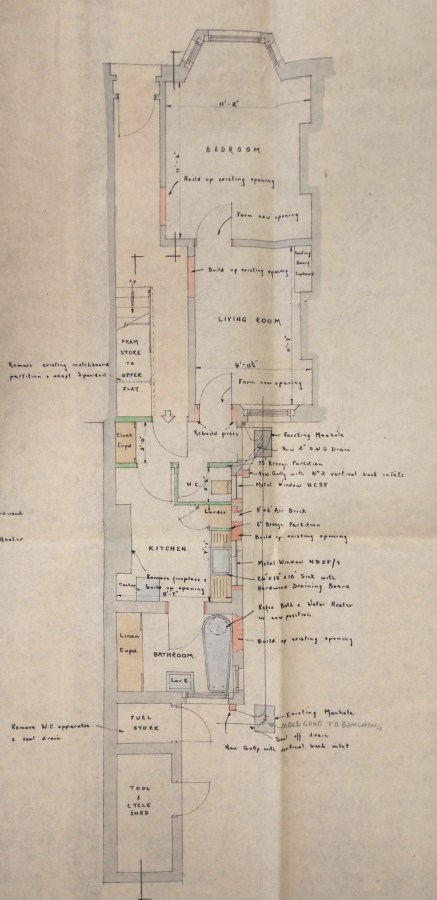 11'-8"
BEDROOM
11'-6"
Build up existing opening
Form new opening
Build up existing opening
Existing
Dwarf
Cupboard
LIVING ROOM
UP
PRAM
STORE
TO
UPPER
FLAT.
Remove existing matchboard
partition & adapt Spandril
9'-0½"
Form new opening
Rebuild piers
Existing Manhole
New 4" S.W.G Drain
Cloak
Cupd.
Breeze Partition
New Gully with Nº 2 vertical back inlets
W.C.
Metal Window NC5F
Larder
9"x6" Air Brick
2" Breeze Partition
Build up existing opening
KITCHEN
Metal Window ND2F/S
24"x18"x10" Sink with
Hardwood Draining Board
Remove fireplace &
build up opening
Cooker
8'-7"
Refix Bath & Water Heater
in new position.
Heater
Build up existing opening
Linen
Cupd.
BATHROOM
Lav B
Remove W.C. apparatus
& seal drain
FUEL
STORE
Existing Manhole
MAKE GOOD TO BENCHING
Seal off drain
New Gully with vertical back inlet
TOOL
&
CYCLE
SHED